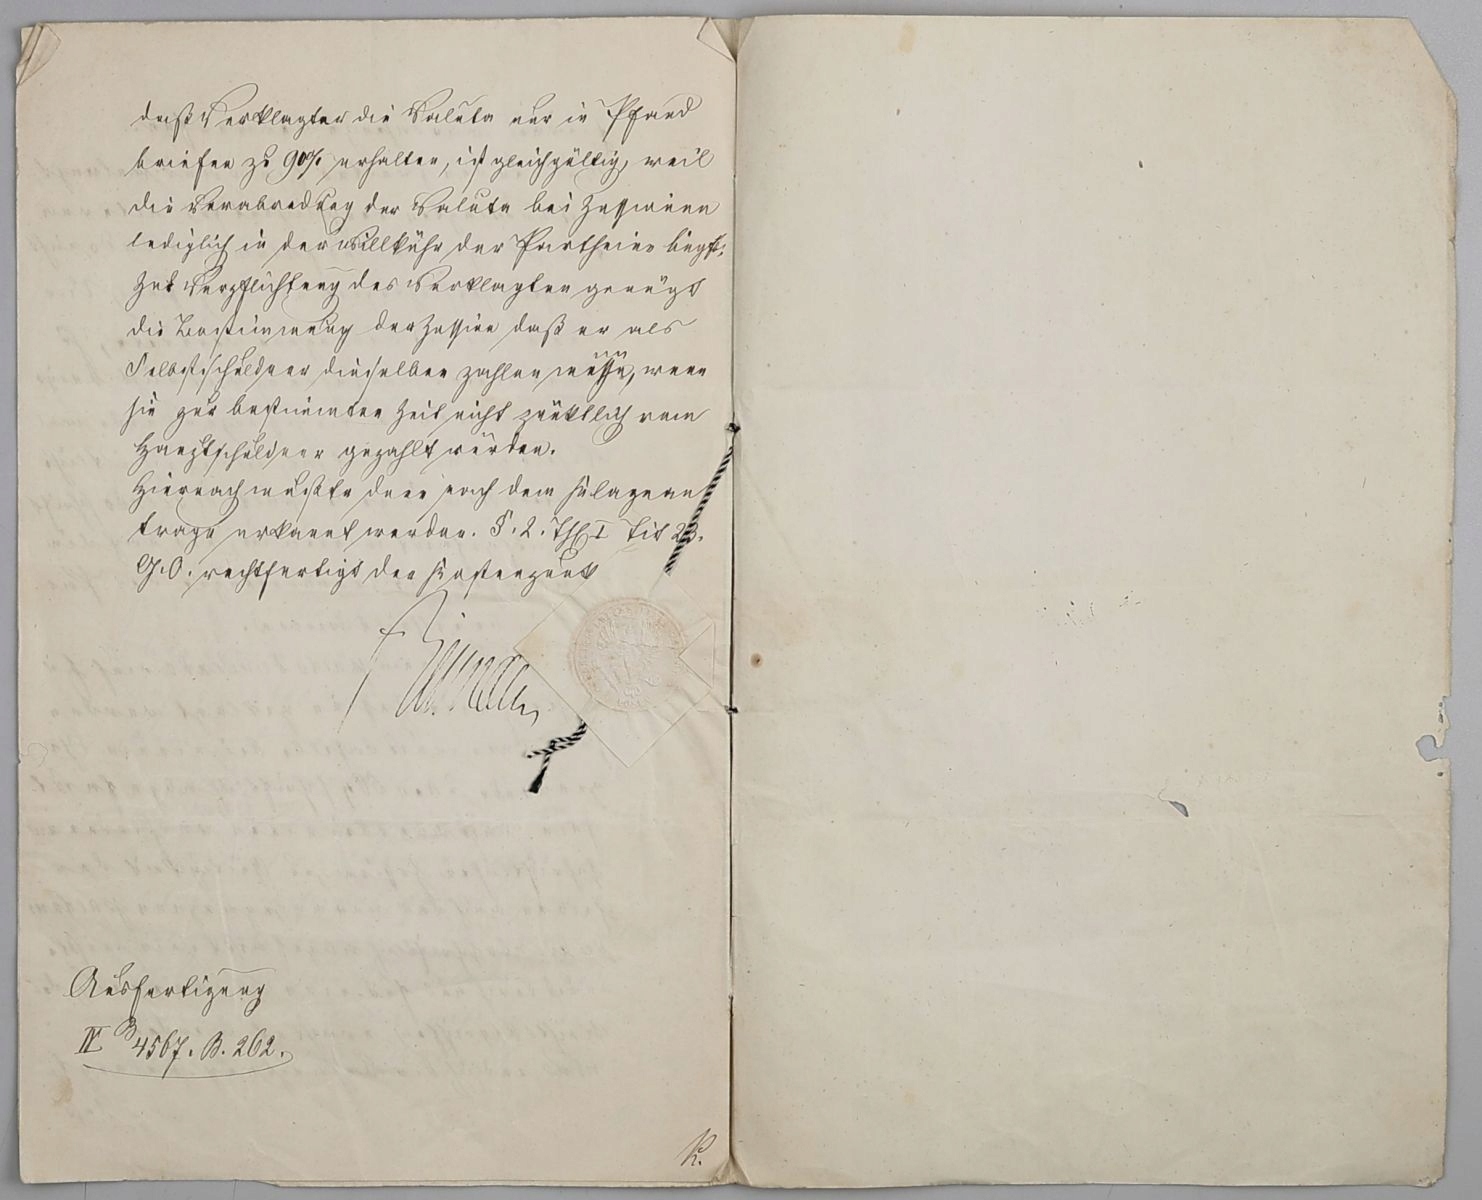 daß Verklagter die Valuta nur in Pfand
briefen zu 90% erhalten, ist gleichgültig, weil
die Verabredung der Valuta bei Zessionen
lediglich in der Willkühr der Partheien liegt.
Zur Verpflichtung des Verklagten genügt
die Bestimmung der Zession daß er als
Selbstschuldner dieselben zahlen müsse, wenn
sie zur bestimmten Zeit nicht pünktlich vom
Hauptschuldner gezahlt würden.
Hiernach mußte denn nach dem Klagean
trage erkannt werden. §. 2. Thl I Tit 23.
G. O. rechtfertigt den Kostenpunkt
Ausfertigung
IV B 4567. B. 262.
K.